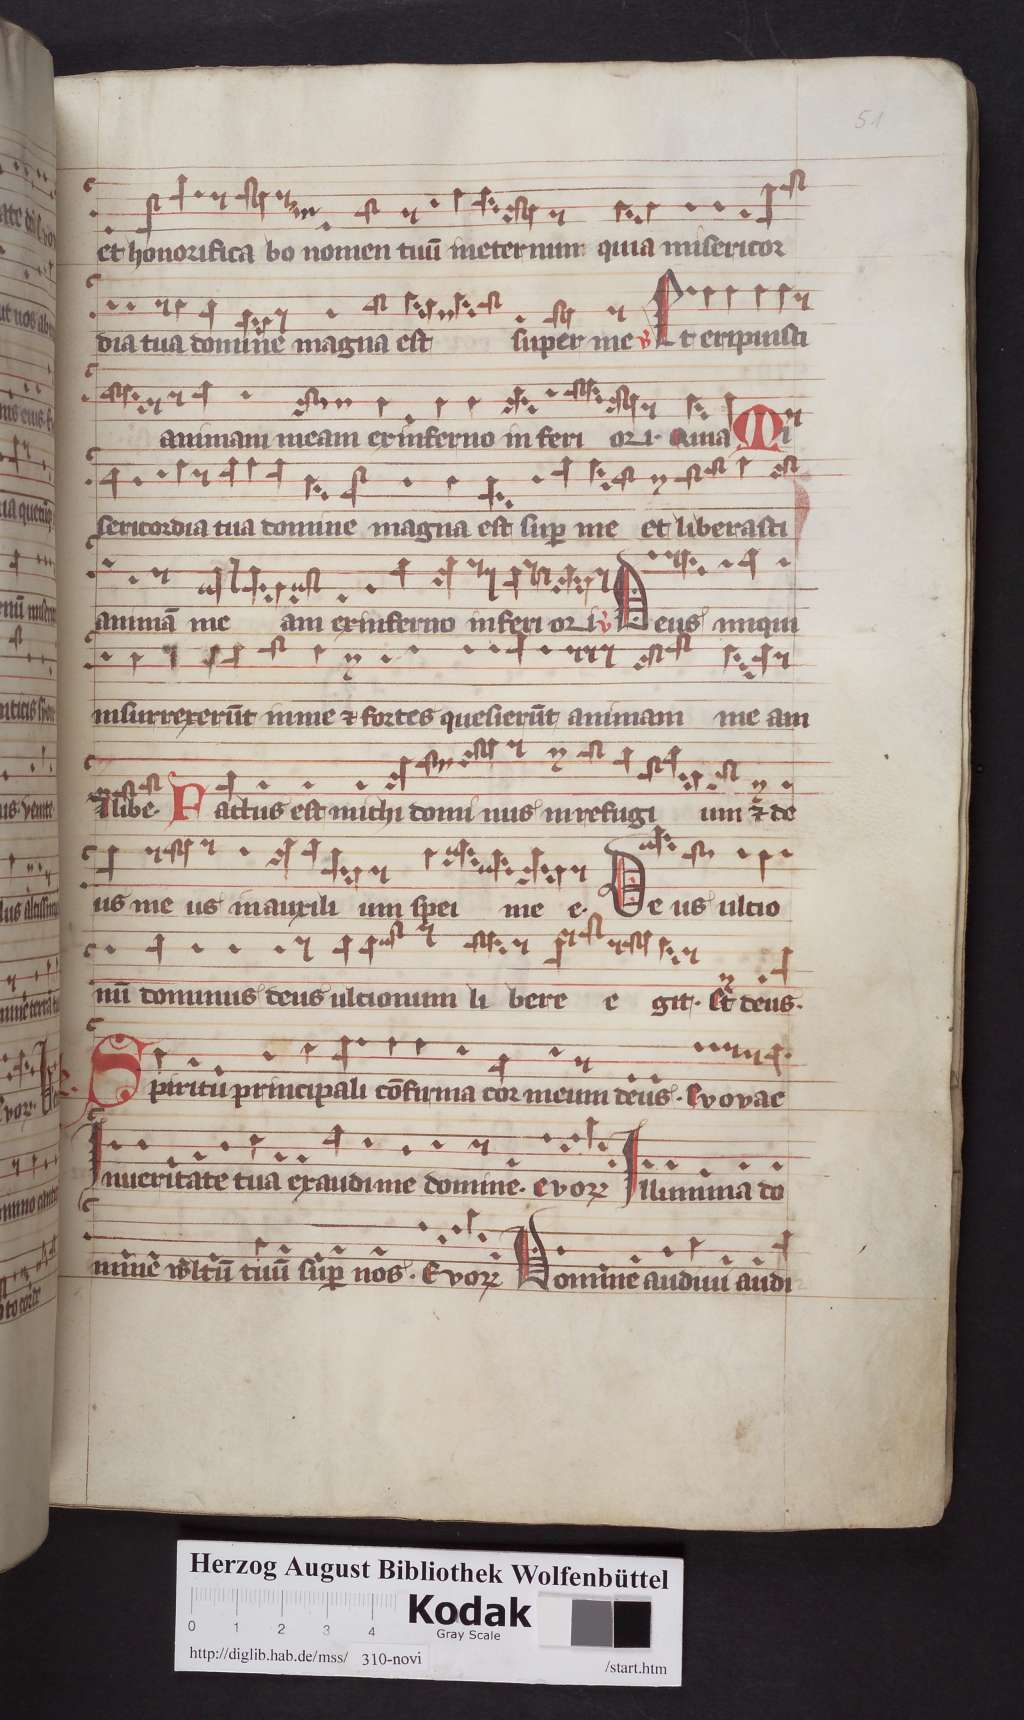 51
et honorifica bo nomen tuū ineternum quia misericor
dia tua domine magna est super me ℣ Et eripuisti
animam meam exinferno in feri ori. Quia Mi
sericordia tua domine magna est sup me et liberasti
animā me am exinferno inferi ori ℣ Deus iniqui
insurrexerūt inme ⁊ fortes quesierūt animam me am
Et libe. Factus est michi domi nus inrefugi um ⁊ de
us me us inauxili um spei me e. De us ultio
nū dominus deus ultionum li bere e git. Et deus.
Spiritu principali cōfirma cor meum deus. Evovae
Inueritate tua exaudi me domine. evoꝝ Illumina do
mine uultū tuū sup nos. Evoꝝ Domine audiui audi
Herzog August Bibliothek Wolfenbüttel
Kodak
Gray Scale
0 1 2 3 4
http://diglib.hab.de/mss/ 310-novi /start.htm